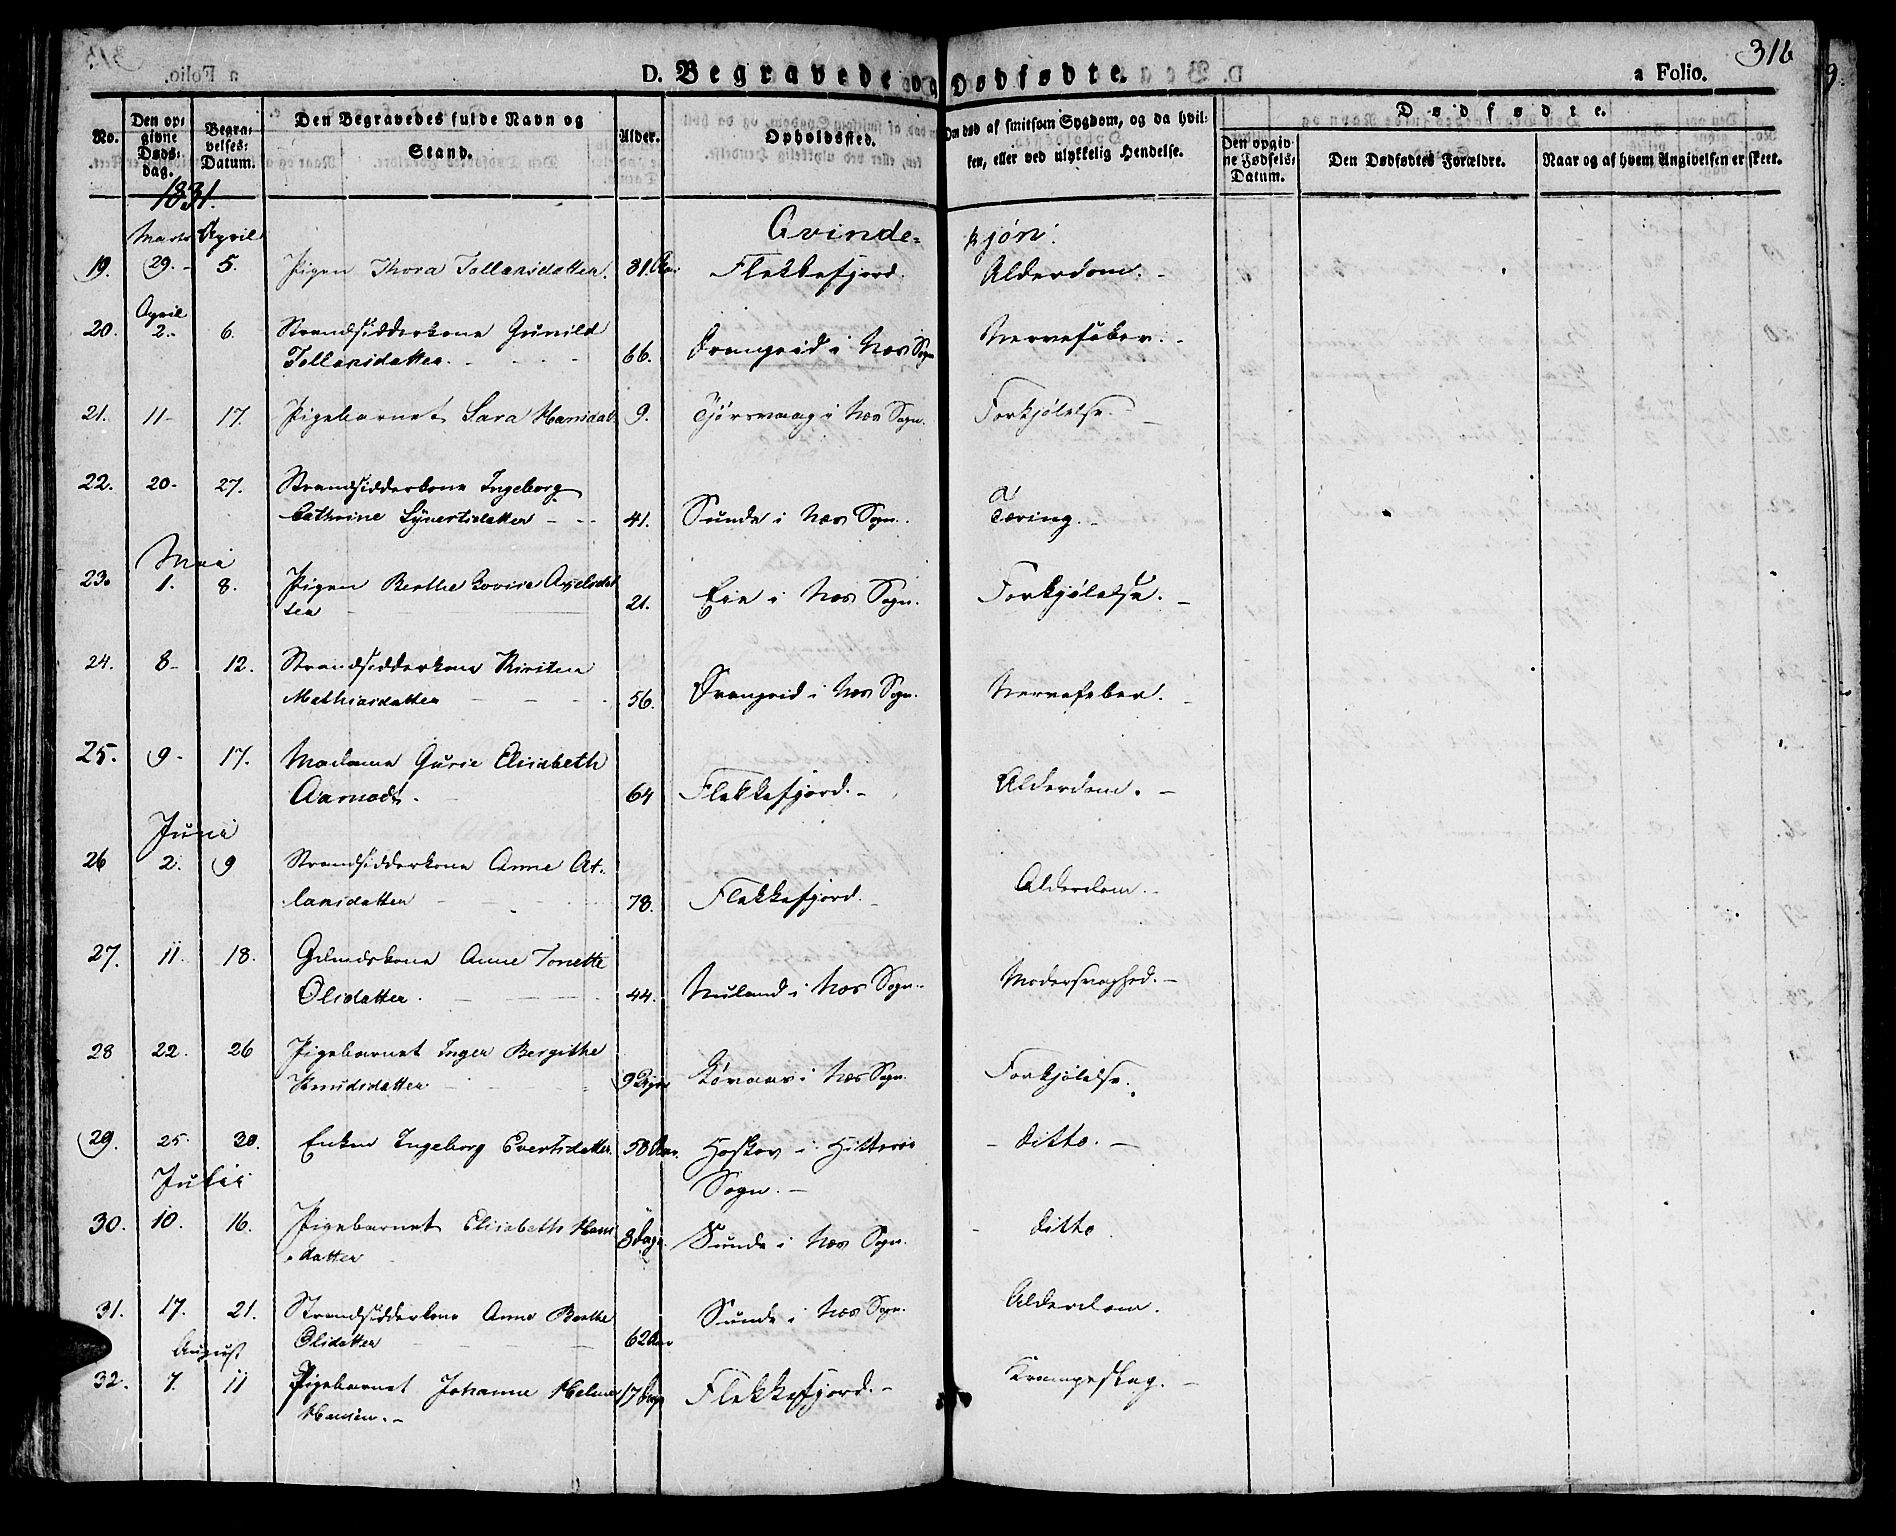 316
D. Begravede og Dødfødte.
a Folio.
No.
Den op-
givne
Døds-
dag.
Begra-
velses-
Datum.
Den Begravedes fulde Navn og
Stand.
Alder.
Opholdssted.
Om død af smitsom Sygdom, og da hvil-
ken, eller ved ulykkelig Hendelse.
Dødfødte.
Den opgiv-
ne Fødsels-
Datum.
Den Dødfødtes Forældre.
Naar og af hvem Angivelsen er skeet.
1831.
Marts April
Qvinde- kjøn.
19. 29. 5. Pigen Thora Tollaksdatter. 81 Aar Flekkefjord. Alderdom.
April
20. 2. 6. Strandsidderkone Gunild
Tollaksdatter. 66. i Næs Sogn Nervefeber.
21. 11 17. Pigebarnet Sara Hansdat. 9. Tjørsvaag i Næs Sogn. Forkjølelse.
22. 20. 27. Strandsidderkone Ingeborg
Cathrine Syvertsdatter 41. Sunde i Næs Sogn. Tæring.
Mai
23. 1. 8. Pigen Berthe Lovise Axelsdat
ter 21. Eie i Næs Sogn. Forkjølelse.
24. 8 12. Strandsidderkone Kirsten
Mathiasdatter 56. i Næs Sogn. Nervefeber.
25. 9 17. Madame Gurie Elisabeth
Aamodt. 64 Flekkefjord. Alderdom.
Juni
26 2. 9 Strandsidderkone Anne At-
laksdatter 78. Flekkefjord. Alderdom.
27. 11. 18. Gaardmandskone Anne Tonette
Olsdatter. 44. Nuland i Næs Sogn. Modersvaghed.
28 22. 26 Pigebarnet Inger Bergithe
Knudsdatter. 9 Uger i Næs Sogn. Forkjølelse.
29. 25. 30. Enken Ingeborg Evertsdatter 50 Aar. i Hitterøe
Sogn. ditto.
Julii
30. 10. 16. Pigebarnet Elisabeth Hans
datter 8 Dage. Sunde i Næs Sogn. ditto
31. 17. 21. Strandsidderkone Anne Berthe
Olsdatter 62 Aar Sunde i Næs Sogn. Alderdom.
August
32. 7. 11 Pigebarnet Johanne Helene
Hansen. 17 Dage Flekkefjord. Krampeslag.